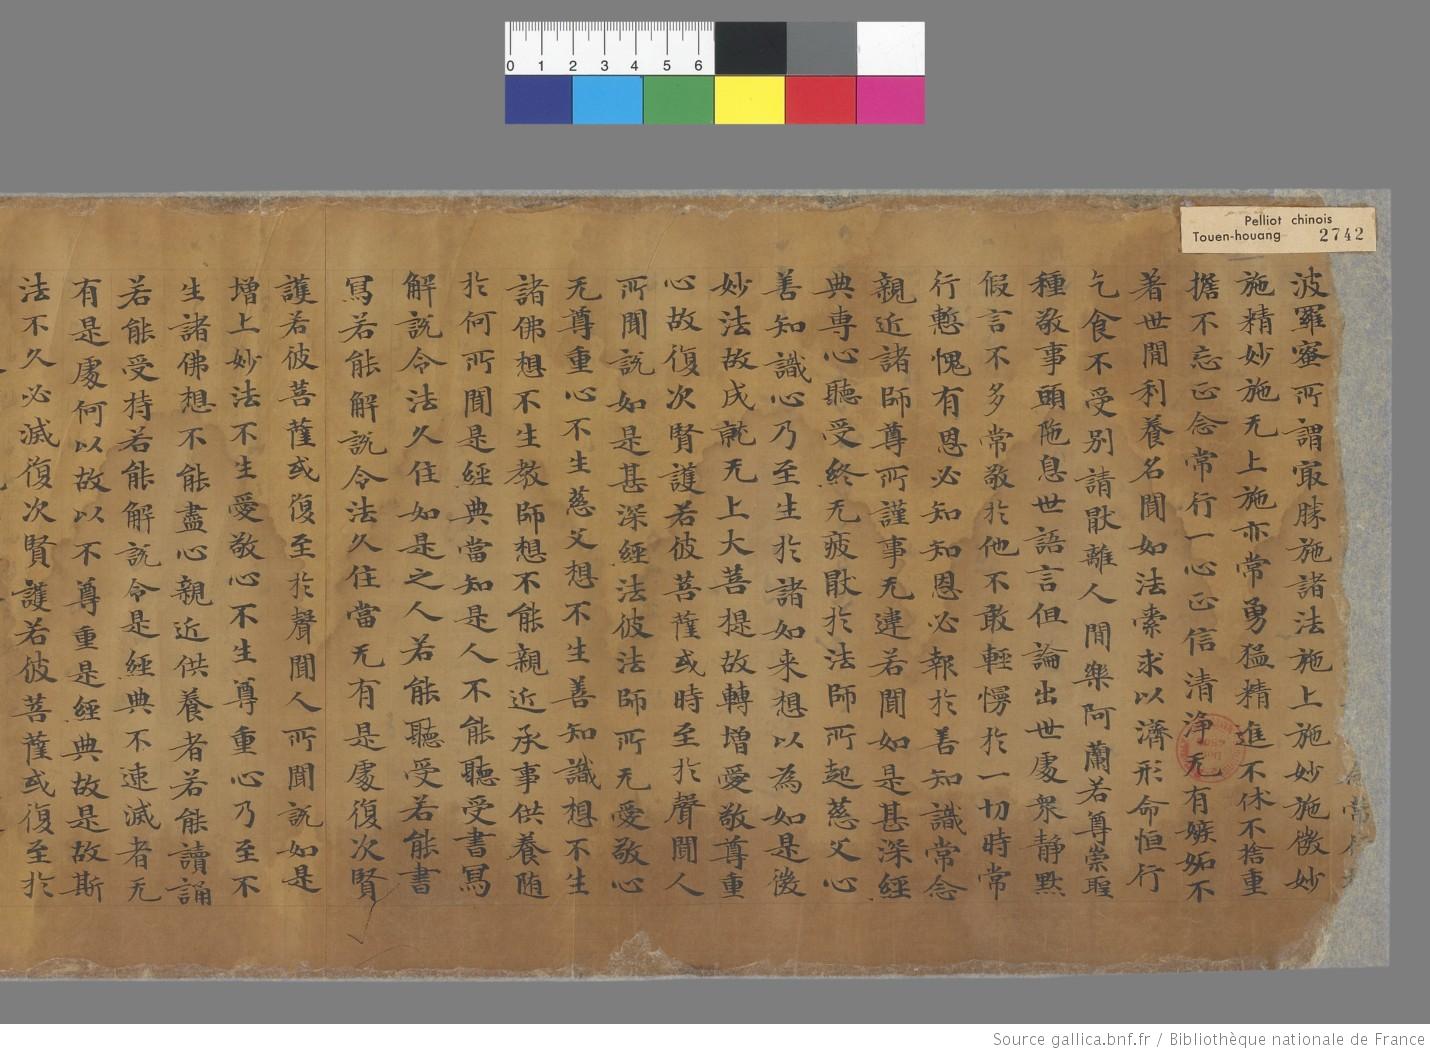 Pelliot chinois
Touen-houang 2742
波羅蜜所謂冣勝施諸法施上施妙施微妙
施精妙施无上施亦常勇猛精進不休不捨重
擔不忘正念常行一心正信清淨无有嫉妬不
著世間利養名聞如法索求以濟形命恒行
乞食不受別請猒離人間樂阿蘭若尊崇聖
種敬事頭陁息世語言但論出世處衆静默
假言不多常敬於他不敢輕慢於一切時常
行慙愧有恩必知知恩必報於善知識常念
親近諸師尊所謹事无違若聞如是甚深經
典專心聽受終无疲猒於法師所起慈父心
善知識心乃至生於諸如来想以為如是微
妙法故成就无上大菩提故轉增愛敬尊重
心故復次賢護若彼菩薩或時至於聲聞人
所聞説如是甚深經法彼法師所无愛敬心
无尊重心不生慈父想不生善知識想不生
諸佛想不生教師想不能親近承事供養随
於何所聞是經典當知是人不能聽受書寫
解説令法久住如是之人若能聽受若能書
寫若能解説令法久住當无有是處復次賢
護若彼菩薩或復至於聲聞人所聞説如是
增上妙法不生愛敬心不生尊重心乃至不
生諸佛想不能盡心親近供養者若能讀誦
若能受持若能解説令是經典不速滅者无
有是處何以故以不尊重是經典故是故斯
法不久必滅復次賢護若彼菩薩或復至於
0 1 2 3 4 5 6
Source gallica.bnf.fr / Bibliothèque nationale de France